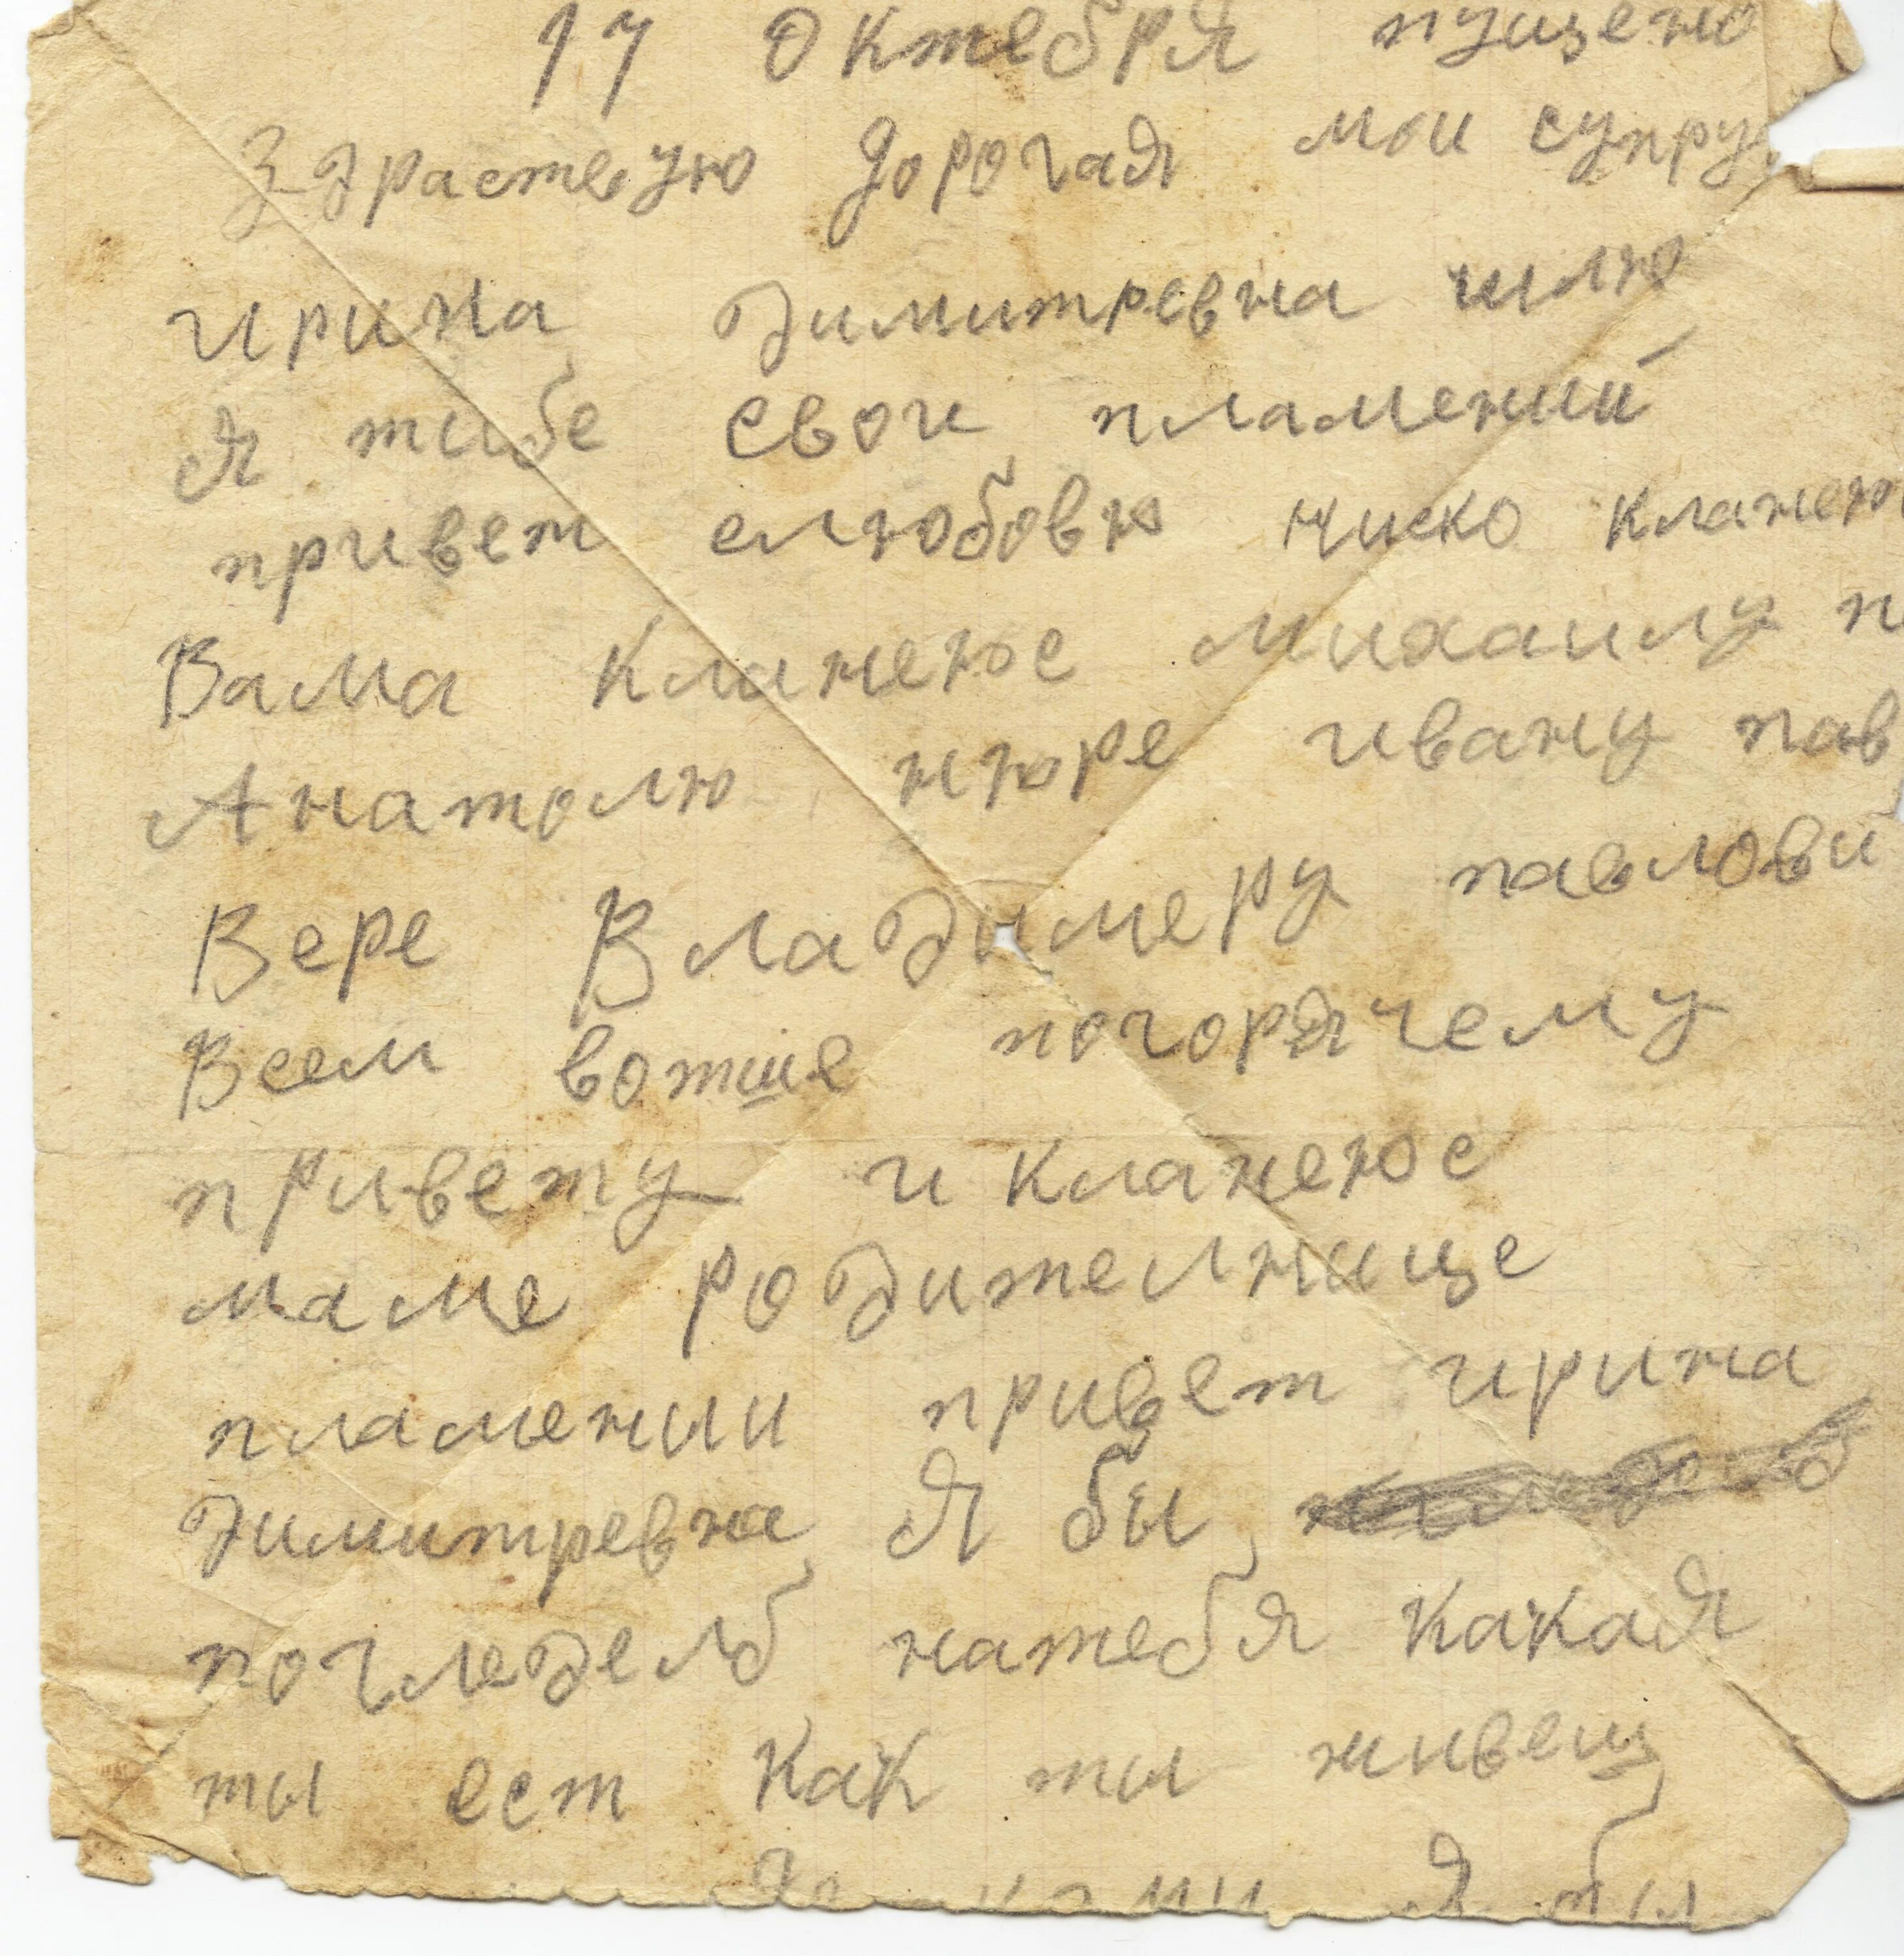 17 Октебря пущено
Здраствую дорогая мои супру
Ирина Димитревна шлю
Я тибе свои пламений
привет слюбовю ниско кланею
Вама Кланеюс михаилу
Анатолю нюре ивану пав
Вере Владимеру павлови
Всем вотше погорячему
привету и кланеюс
маме родителнице
пламении привет ирина
Димитревна Я бы
погледелб натебя Какая
ты ест Как ты живеш
Я бы